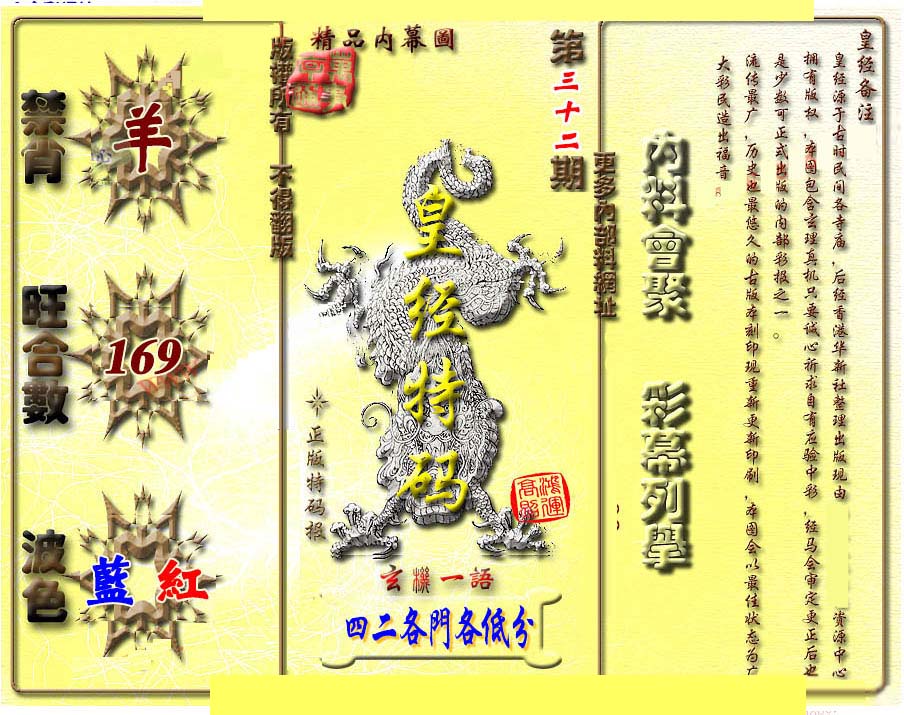 精品内幕圖
第三十二期
版權所有 不得翻版
更多內部料網址
禁肖
羊
旺合數
169
波色
藍 紅
皇经特码
正版特码报
鴻運高照
玄機一語
四二各門各低分
內料會聚 彩幕列舉
皇经备注
皇经源于古时民间各寺庙，后经香港华新社整理出版现由 资源中心
拥有版权，本图包含玄理真机只要诚心祈求自有应验中彩，经马会审定更正后也
是少数可正式出版的内部彩报之一。
流传最广，历史也最悠久的古版本刻印现重新更新印刷，本图会以最佳状态为广
大彩民造出福音